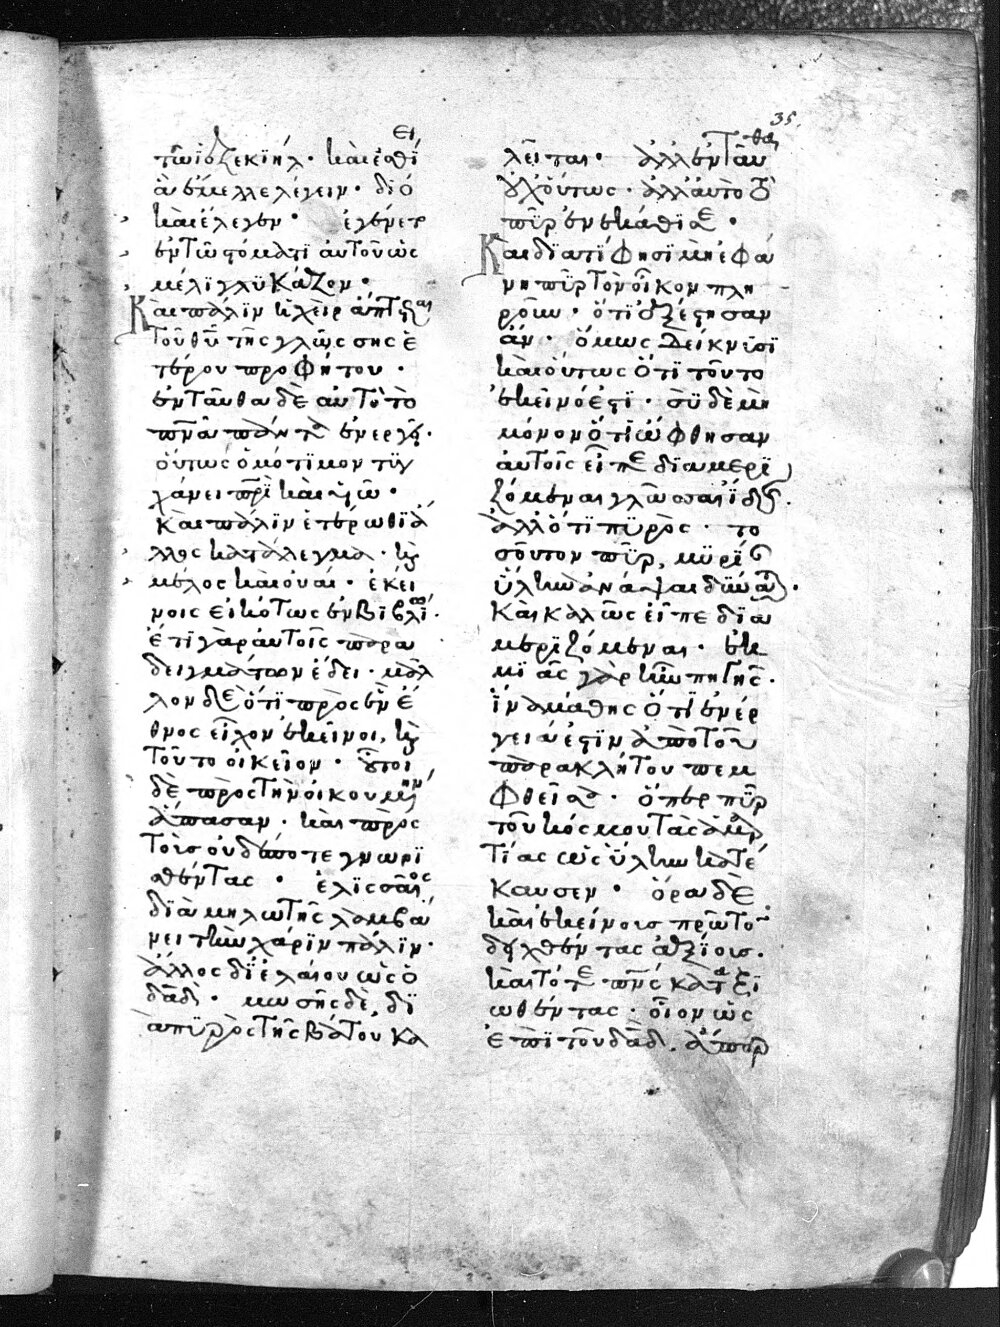 35
τῶ ἰεζεκιήλ· καὶ ἐσθίει
ἃ ἔμελλε λέγειν· διὸ
καὶ ἔλεγεν· ἐγένετο
ἐν τῶ στόματί αὐτοῦ ὡς
μέλι γλυκάζον·
Καὶ πάλιν ἡ χεὶρ ἅπτεται
τοῦ θυ τῆς γλώσσης ἑ
τέρου προφήτου·
ἐνταῦθα δὲ αὐτὸ τὸ
πνα πάντα ἐνεργεῖ·
οὕτως ὁμότιμον τυγ
χάνει πρι καὶ υἱῶ·
Καὶ πάλιν ἑτέρωθι ἀ
λλος κατάλεγμα· καὶ
μέλος καὶ οὐαί· ἐκεί
νοις εἰκότως ἐν βιβλίω·
ἔτι γὰρ αὐτοῖς παρα
δειγμάτων ἔδει· μᾶλ
λον δὲ ὅτι πρὸς ἓν ἔ
θνος εἶχον ἐκεῖνοι, καὶ
τοῦτο οἰκεῖον· οὗτοι
δὲ πρὸς τὴν οἰκουμένην
ἅπασαν· καὶ πρὸς
τοὺς οὐδέποτε γνωρι
σθέντας· ἐλισσαῖος
διὰ μηλωτῆς λαμβά
νει τὴν χάριν πάλιν·
ἄλλος δι' ἐλαίου ὡς ὁ
δαδ· μωσῆς δὲ, δι
ὰ πυρὸς τῆς βάτου κα
λεῖται· ἀλλ' ἐνταῦθα
οὐχ οὕτως· ἀλλ' αὐτὸ τὸ
πῦρ ἐνεκάθισε·
Καὶ διατί φησι μὴ ἐφά
νη πῦρ τὸν οἶκον πλη
ροῦν· ὅτι ἐξέστησαν
ἄν· ὅμως δείκνυσι
καὶ οὕτως ὅτι τοῦτο
ἐκεῖνό ἐστι· σὺ δὲ μὴ
μόνον ὅτι ὤφθησαν
αὐτοῖς εἶπε διαμερι
ζόμεναι γλῶσσαι ἴδης·
ἀλλ' ὅτι πυρός· το
σοῦτον πῦρ, μυρίαν
ὕλην ἀνάψαι δύναται·
Καὶ καλῶς εἶπε δια
μεριζόμεναι· ἐκ
μιᾶς γὰρ ἦν πηγῆς·
ἵνα μάθης ὅτι ἐνέρ
γειά ἐστιν ἀπὸ τοῦ
παρακλήτου πεμ
φθεῖσα· ὅπερ πῦρ
τοῦ κόσμου τὰς ἁμαρ
τίας ὡς ὕλην κατέ
καυσεν· ὅρα δὲ
καὶ ἐκείνους πρῶτον
δειχθέντας ἀξίους·
καὶ τότε πνς καταξι
ωθέντας· οἷον ὡς
ἐπὶ τοῦ δαδ, ἅπερ